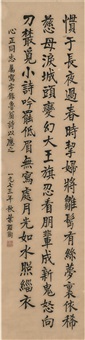 慣于長夜過春時挈婦將雛鬢有絲夢裏依稀
慈母淚城頭變幻大王旗忍看朋輩成新鬼怒向
刀叢覓小詩吟罷低眉無寫處月光如水照緇衣
心正同志屬寫字錄魯翁詩以應之 一九七三年秋葉